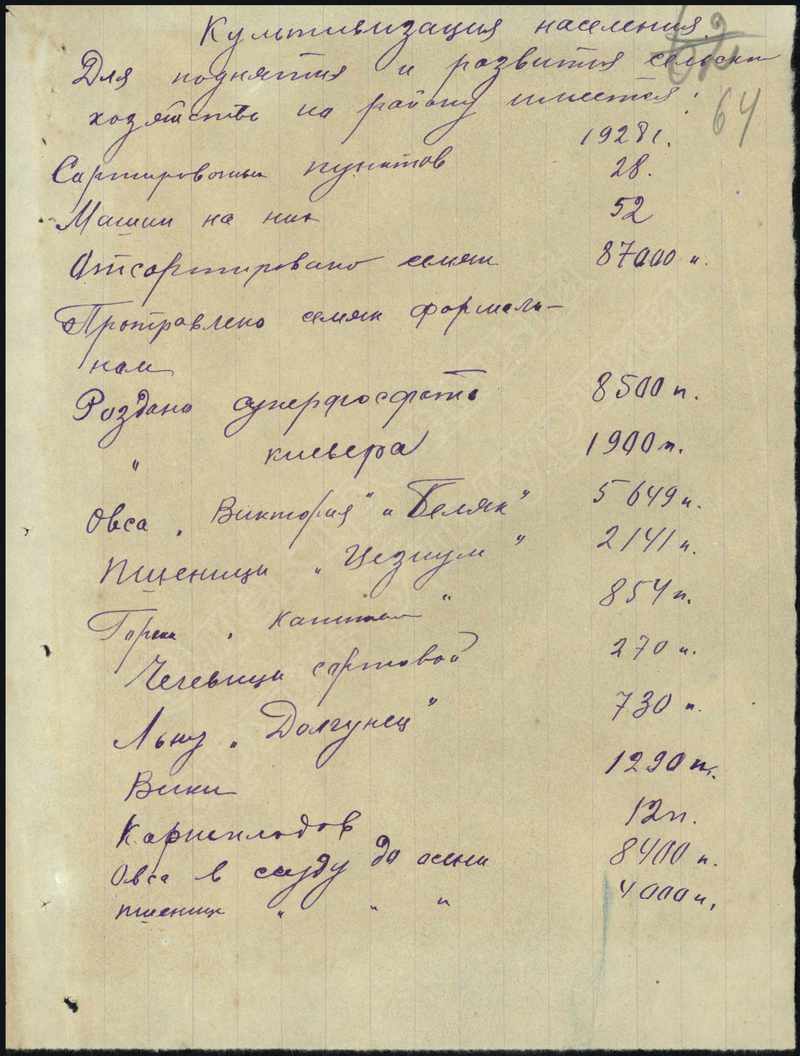 Культивизация населения.
64
Для поднятия и развития сельски
хозяйства по району имеется:
1928 г.
Сартировочных пунктов 28.
Машин на них 52
Отсортировано семян 87000 п.
Протравлено семян формали-
ном
Роздано суперфосфата 8500 п.
" клевера 1900 п.
Овса „Виктория" и „Беляк" 5649 п.
Пшеници „Цезиум" 2141 п.
Гороха „Капитал" 854 п.
Чечевици сартовой 270 п.
Льну „Долгунец" 730 п.
Вики 1290 п.
Карнеплодов 12 п.
Овса в ссуду до осени 8400 п.
пшениц " " " 4000 п.